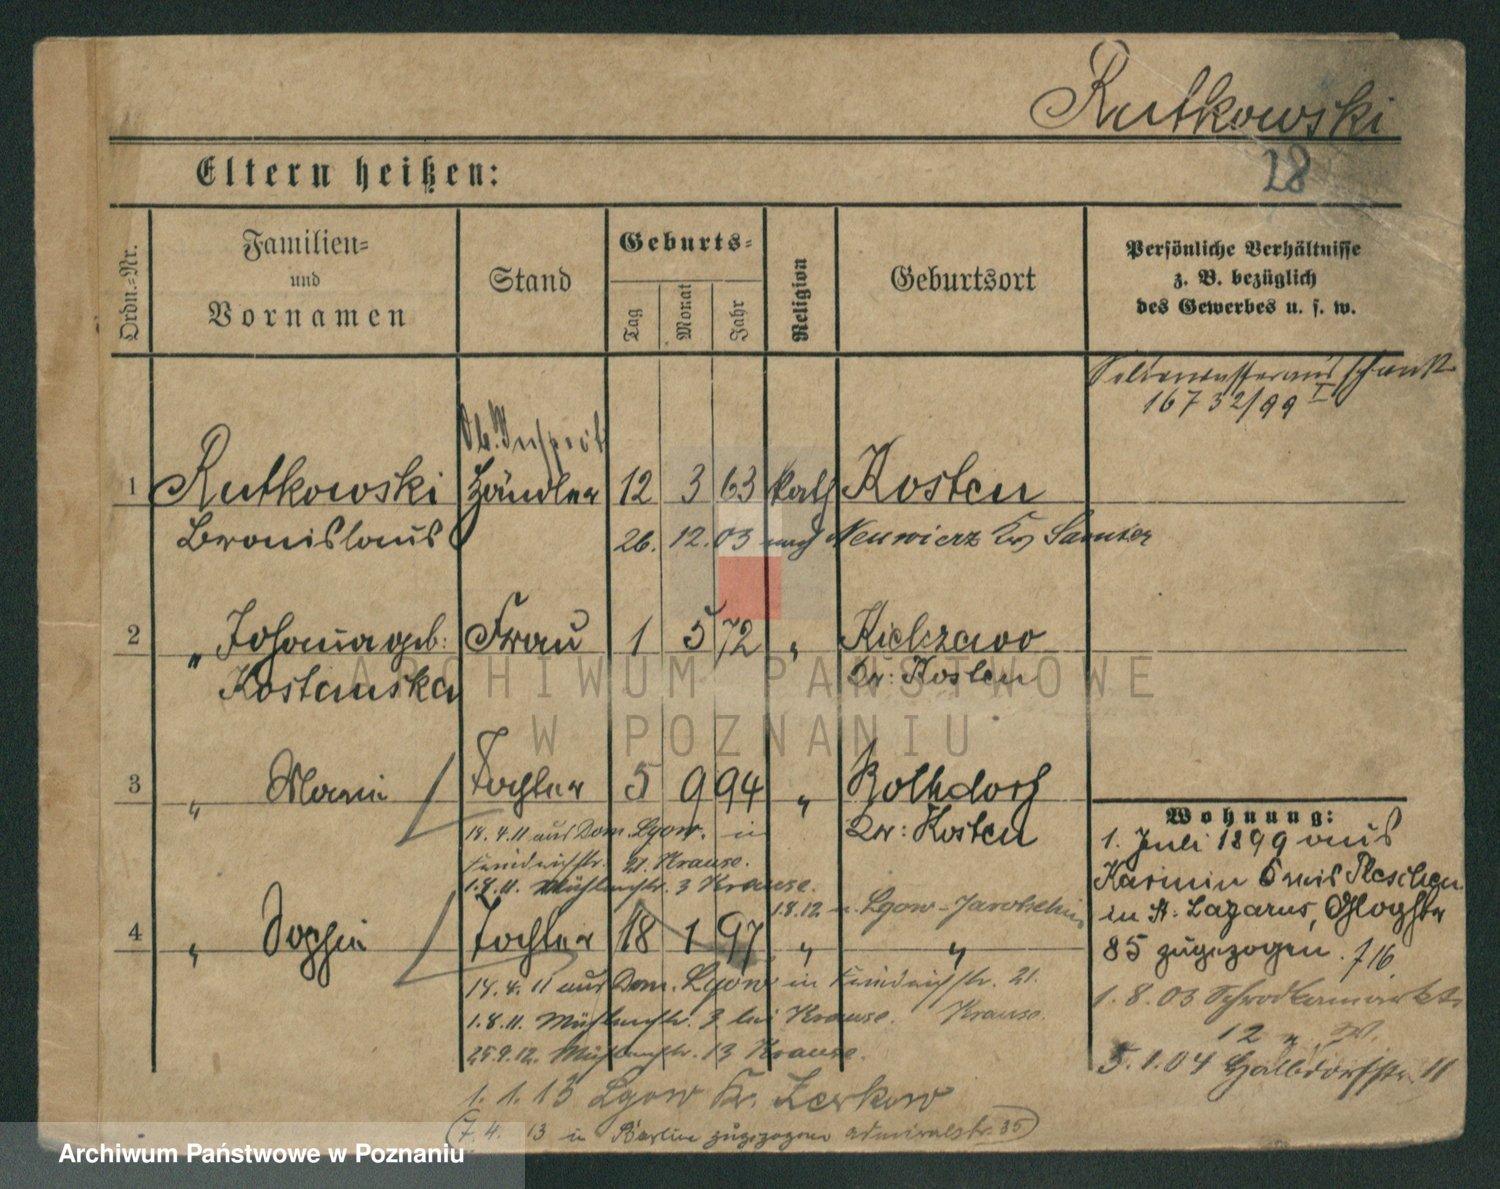 Rutkowski
28
Eltern heißen:
Ordn.-Nr.
Familien-
und
Vornamen
Stand
Geburts-
Tag
Monat
Jahr
Religion
Geburtsort
Persönliche Verhältnisse
z. B. bezüglich
des Gewerbes u. s. w.
Selterwasserausschank
16732/99 I
1 Rutkowski Händler 12 3 63 kath Kosten
Bronislaus 26. 12. 03 nach Neuwierz Kr Samter
2 " Johanna geb: Frau 1 5 72 " Kielczewo
Kostanska Kr: Kosten
3 " Marie Tochter 5 9 94 " Rothdorf
Kr: Kosten
18. 4. 11 aus Dom. Lgow. in
Friedrichstr. 21. Krause.
1.8.11. Mühlenstr. 3 Krause.
18.12. Lgow-Jarotschin
4 " Sophie Tochter 18 1 97 " "
14. 4. 11 aus Dom. Lgow in Friedrichstr. 21.
1.8.11. Mühlenstr. 3 bei Krause. Krause.
25.9.12. Mühlenstr. 13 Krause.
1. 1. 13 Lgow Kr. Zerkow
7. 4. 13 in Berlin zugezogen Admiralstr. 35
Wohnung:
1. Juli 1899 aus
Karmin Kreis Pleschen
in St. Lazarus, Glogstr
85 zugezogen. 716.
1.8.03 Schrodkamarkt
12
5.1.04 Halbdorfstr. 11
ARCHIWUM PAŃSTWOWE
W POZNANIU
Archiwum Państwowe w Poznaniu